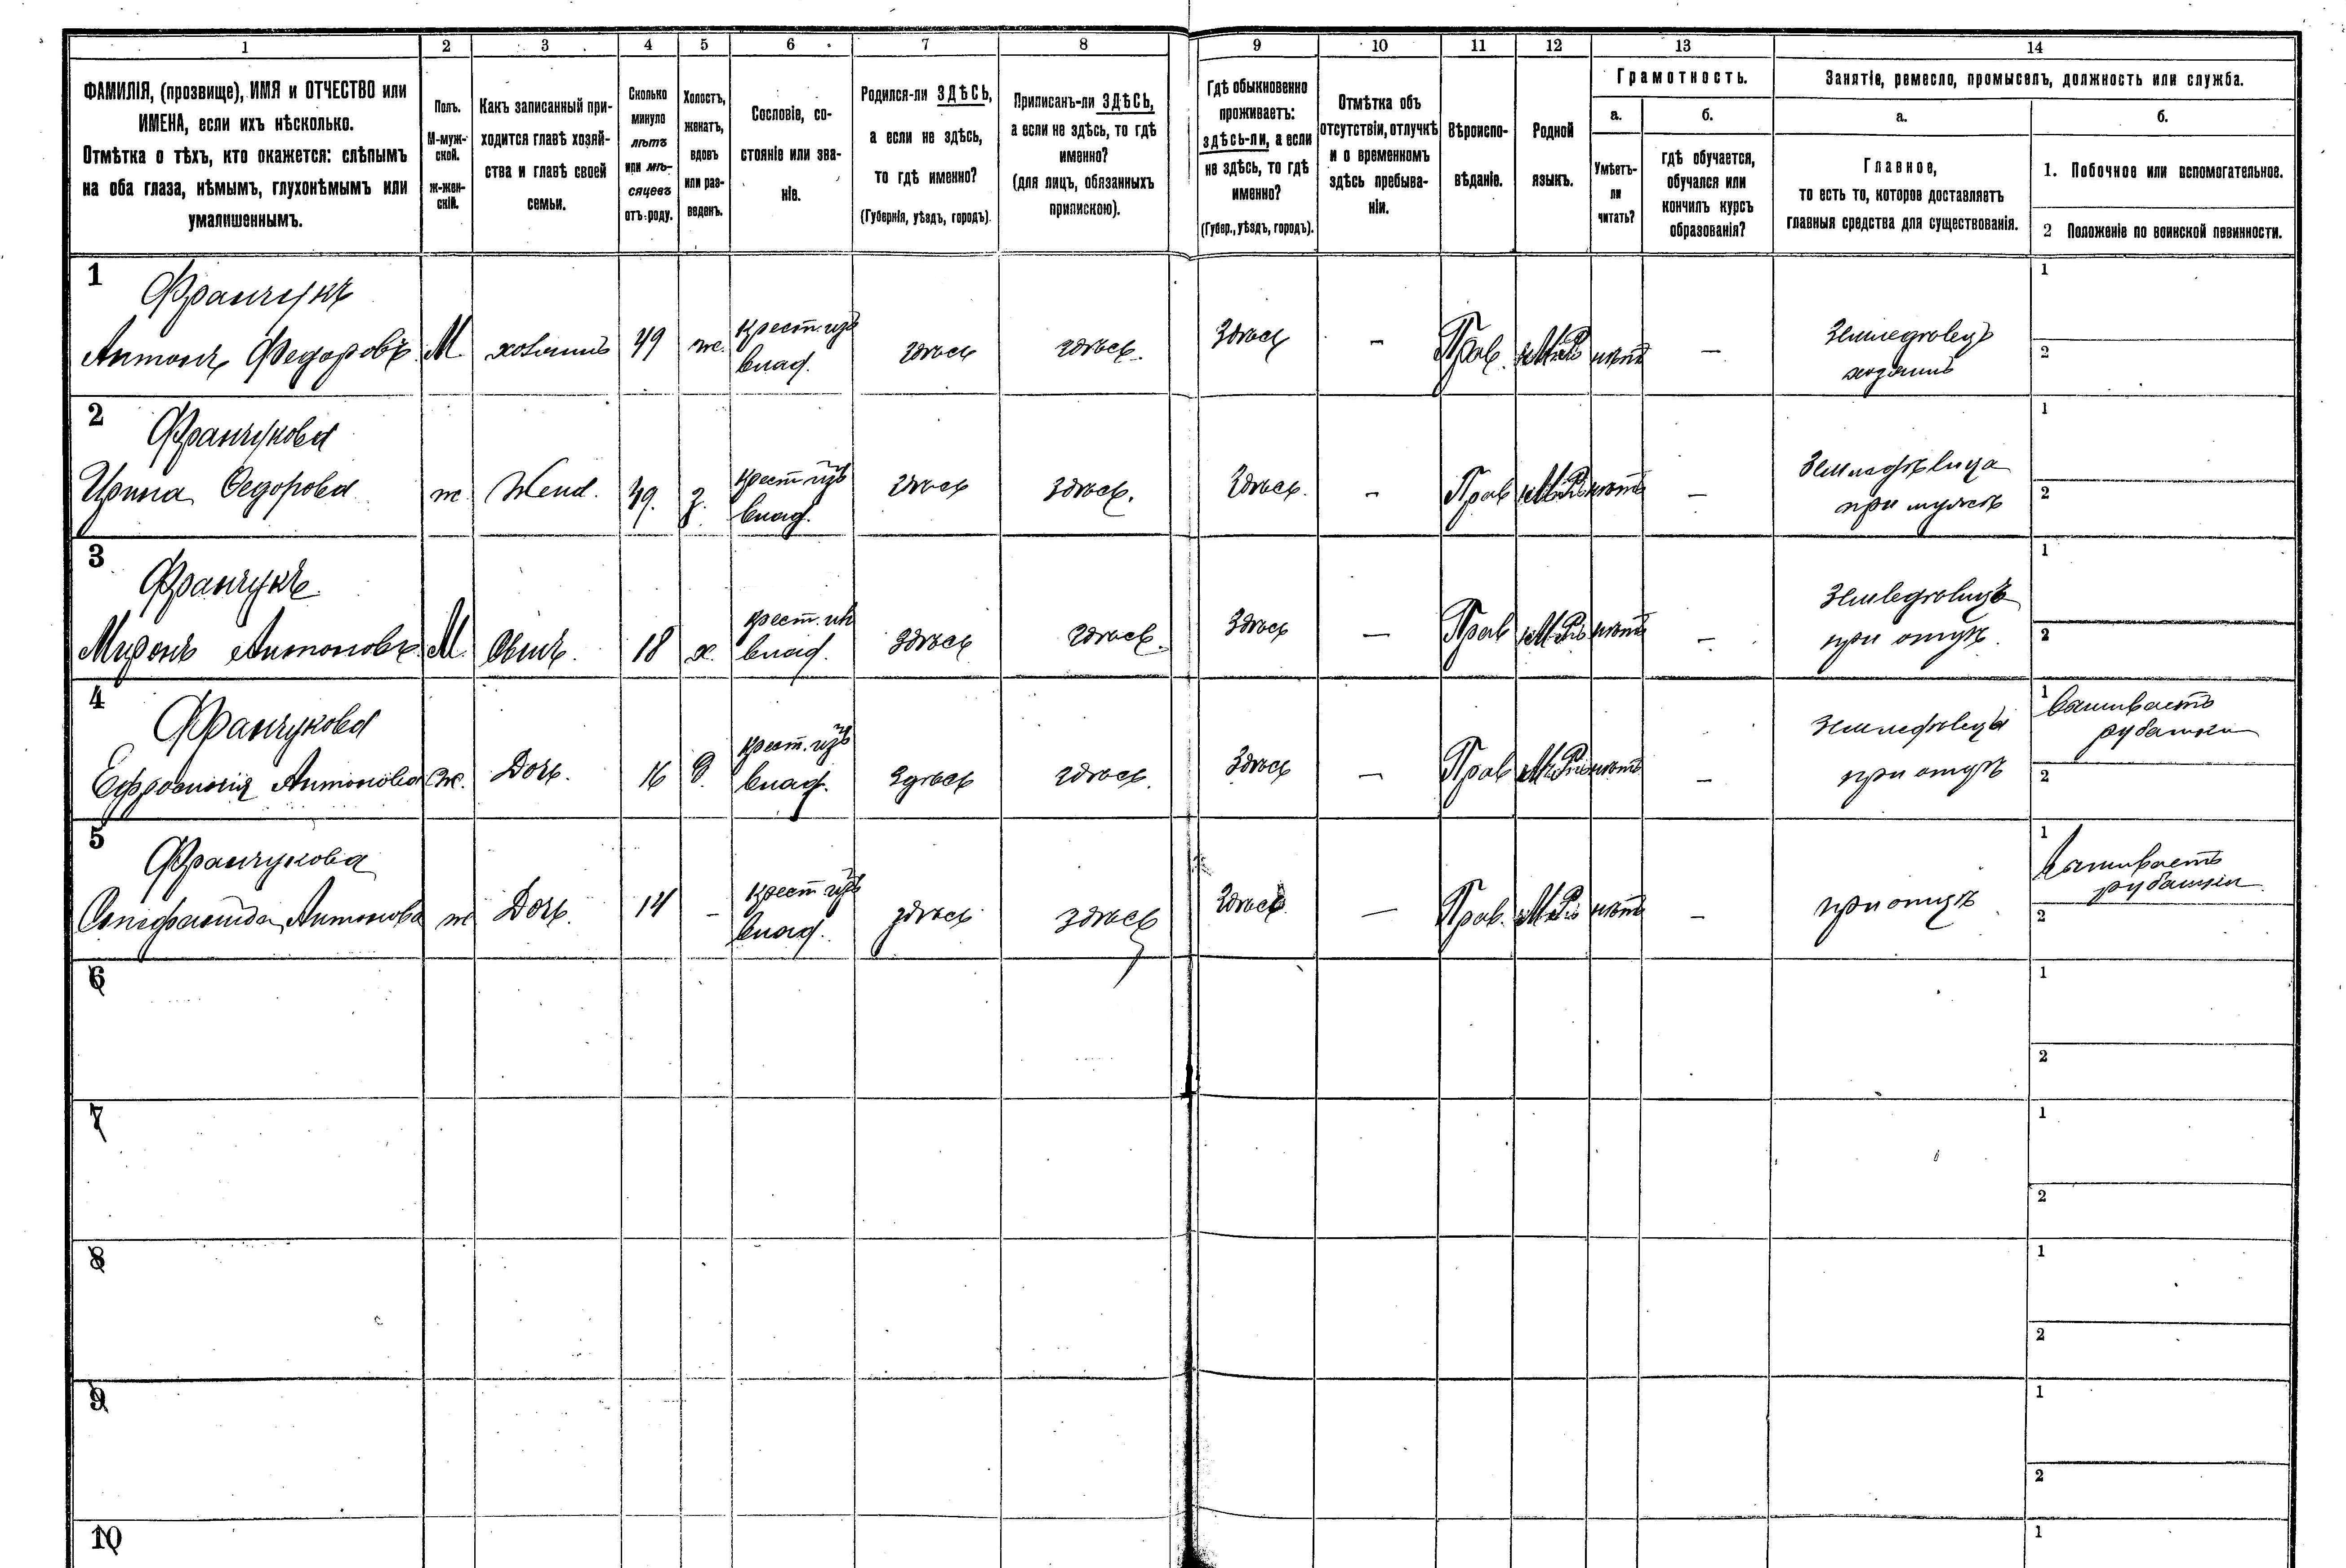 1 2 3 4 5 6 7 8 9 10 11 12 13 14
ФАМИЛІЯ, (прозвище), ИМЯ и ОТЧЕСТВО или
ИМЕНА, если ихъ нѣсколько.
Отмѣтка о тѣхъ, кто окажется: слѣпымъ
на оба глаза, нѣмымъ, глухонѣмымъ или
умалишеннымъ.
Полъ.
М-муж-
ской.
ж-жен-
скій.
Какъ записанный при-
ходится главѣ хозяй-
ства и главѣ своей
семьи.
Сколько
минуло
лѣтъ
или мѣ-
сяцевъ
отъ роду.
Холостъ,
женатъ,
вдовъ
или раз-
веденъ.
Сословіе, со-
стояніе или зва-
ніе.
Родился-ли ЗДѢСЬ,
а если не здѣсь,
то гдѣ именно?
(Губернія, уѣздъ, городъ).
Приписанъ-ли ЗДѢСЬ,
а если не здѣсь, то гдѣ
именно?
(для лицъ, обязанныхъ
припискою).
Гдѣ обыкновенно
проживаетъ:
здѣсь-ли, а если
не здѣсь, то гдѣ
именно?
(Губер., уѣздъ, городъ).
Отмѣтка объ
отсутствіи, отлучкѣ
и о временномъ
здѣсь пребыва-
ніи.
Вѣроиспо-
вѣданіе.
Родной
языкъ.
Грамотность.
а.
Умѣетъ-
ли
читать?
б.
гдѣ обучается,
обучался или
кончилъ курсъ
образованія?
Занятіе, ремесло, промыселъ, должность или служба.
а.
Главное,
то есть то, которое доставляетъ
главныя средства для существованія.
б.
1. Побочное или вспомогательное.
2 Положеніе по воинской повинности.
1
Франчукъ
Антонъ Федоровъ М хозяинъ 49 ж.
крест. изъ
влад.
здѣсь здѣсь. Здѣсь — Прав. нѣтъ —
Земледѣлецъ
хозяинъ
1
2
2
Франчукова
Ирина Федорова ж. Жена. 49. з.
крест. изъ
влад.
здѣсь здѣсь. Здѣсь. — Прав нѣтъ —
Земледѣлица
при мужѣ
1
2
3
Франчукъ
Миронъ Антоновъ М. Сынъ. 18 х.
крест. из
влад.
Здѣсь здѣсь. Здѣсь — Прав нѣтъ —
Земледѣлецъ
при отцѣ.
1
2
4
Франчукова
Ефросинія Антонова ж. Дочь. 16 д.
крест. изъ
влад.
Здѣсь здѣсь. Здѣсь — Прав нѣтъ —
при отцѣ
1 вышиваетъ
рубашки
2
5
Франчукова
Антонова ж Дочь. 14 —
крест. изъ
влад.
здѣсь здѣсь Здѣсь — Прав. нѣтъ —
при отцѣ
1 вышиваетъ
рубашки
2
6
1
2
7
1
2
8
1
2
9
1
2
10
1